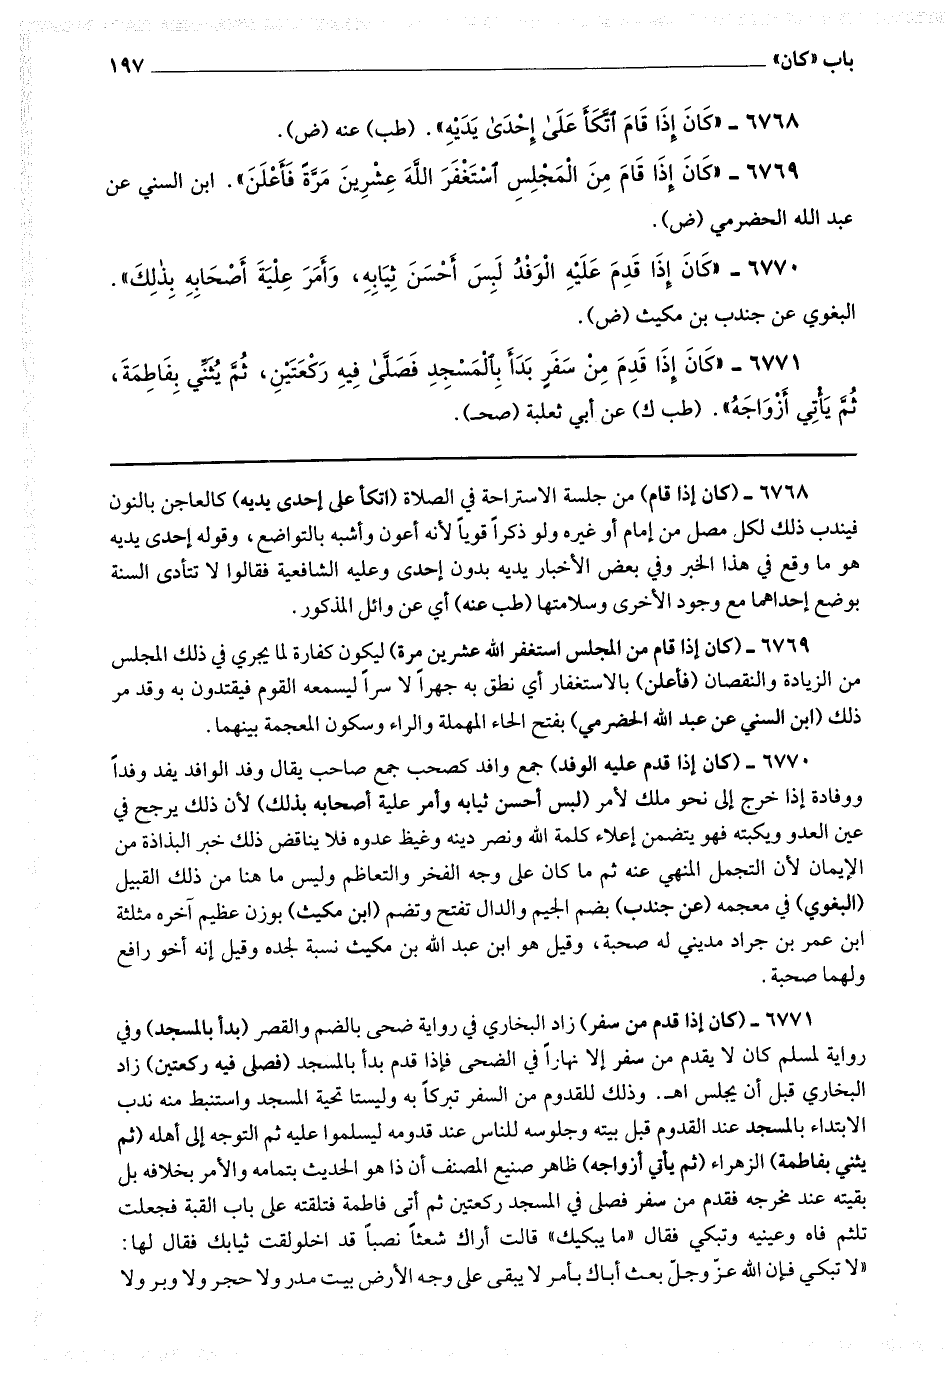 باب «كان» ١٩٧
٦٧٦٨ ـ «كَانَ إِذَا قَامَ ٱتَّكَأَ عَلَىٰ إِحْدَىٰ يَدَيْهِ». (طب) عنه (ض).
٦٧٦٩ ـ «كَانَ إِذَا قَامَ مِنَ الْمَجْلِسِ ٱسْتَغْفَرَ اللَّهَ عِشْرِينَ مَرَّةً فَأَعْلَنَ». ابن السني عن
عبد الله الحضرمي (ض).
٦٧٧٠ ـ «كَانَ إِذَا قَدِمَ عَلَيْهِ الْوَفْدُ لَبِسَ أَحْسَنَ ثِيَابِهِ، وَأَمَرَ عِلْيَةَ أَصْحَابِهِ بِذٰلِكَ».
البغوي عن جندب بن مكيث (ض).
٦٧٧١ ـ «كَانَ إِذَا قَدِمَ مِنْ سَفَرٍ بَدَأَ بِٱلْمَسْجِدِ فَصَلَّىٰ فِيهِ رَكْعَتَيْنِ، ثُمَّ يُثَنِّي بِفَاطِمَةَ،
ثُمَّ يَأْتِي أَزْوَاجَهُ». (طب ك) عن أبي ثعلبة (صحـ).
٦٧٦٨ ـ (كان إذا قام) من جلسة الاستراحة في الصلاة (اتكأ على إحدى يديه) كالعاجن بالنون
فيندب ذلك لكل مصل من إمام أو غيره ولو ذكراً قوياً لأنه أعون وأشبه بالتواضع، وقوله إحدى يديه
هو ما وقع في هذا الخبر وفي بعض الأخبار يديه بدون إحدى وعليه الشافعية فقالوا لا تتأدى السنة
بوضع إحداهما مع وجود الأخرى وسلامتها (طب عنه) أي عن وائل المذكور.
٦٧٦٩ ـ (كان إذا قام من المجلس استغفر الله عشرين مرة) ليكون كفارة لما يجري في ذلك المجلس
من الزيادة والنقصان (فأعلن) بالاستغفار أي نطق به جهراً لا سراً ليسمعه القوم فيقتدون به وقد مر
ذلك (ابن السني عن عبد الله الحضرمي) بفتح الحاء المهملة والراء وسكون المعجمة بينهما.
٦٧٧٠ ـ (كان إذا قدم عليه الوفد) جمع وافد كصحب جمع صاحب يقال وفد الوافد يفد وفداً
ووفادة إذا خرج إلى نحو ملك لأمر (لبس أحسن ثيابه وأمر علية أصحابه بذلك) لأن ذلك يرجح في
عين العدو ويكبته فهو يتضمن إعلاء كلمة الله ونصر دينه وغيظ عدوه فلا يناقض ذلك خبر البذاذة من
الإيمان لأن التجمل المنهي عنه ثم ما كان على وجه الفخر والتعاظم وليس ما هنا من ذلك القبيل
(البغوي) في معجمه (عن جندب) بضم الجيم والدال تفتح وتضم (ابن مكيث) بوزن عظيم آخره مثلثة
ابن عمر بن جراد مديني له صحبة، وقيل هو ابن عبد الله بن مكيث نسبة لجده وقيل إنه أخو رافع
ولهما صحبة.
٦٧٧١ ـ (كان إذا قدم من سفر) زاد البخاري في رواية ضحى بالضم والقصر (بدأ بالمسجد) وفي
رواية لمسلم كان لا يقدم من سفر إلا نهاراً في الضحى فإذا قدم بدأ بالمسجد (فصلى فيه ركعتين) زاد
البخاري قبل أن يجلس اهـ. وذلك للقدوم من السفر تبركاً به وليستا تحية المسجد واستنبط منه ندب
الابتداء بالمسجد عند القدوم قبل بيته وجلوسه للناس عند قدومه ليسلموا عليه ثم التوجه إلى أهله (ثم
يثني بفاطمة) الزهراء (ثم يأتي أزواجه) ظاهر صنيع المصنف أن ذا هو الحديث بتمامه والأمر بخلافه بل
بقيته عند مخرجه فقدم من سفر فصلى في المسجد ركعتين ثم أتى فاطمة فتلقته على باب القبة فجعلت
تلثم فاه وعينيه وتبكي فقال «ما يبكيك» قالت أراك شعثاً نصباً قد اخلولقت ثيابك فقال لها:
«لا تبكي فإن الله عزّ وجلّ بعث أباك بأمر لا يبقى على وجه الأرض بيت مدر ولا حجر ولا وبر ولا